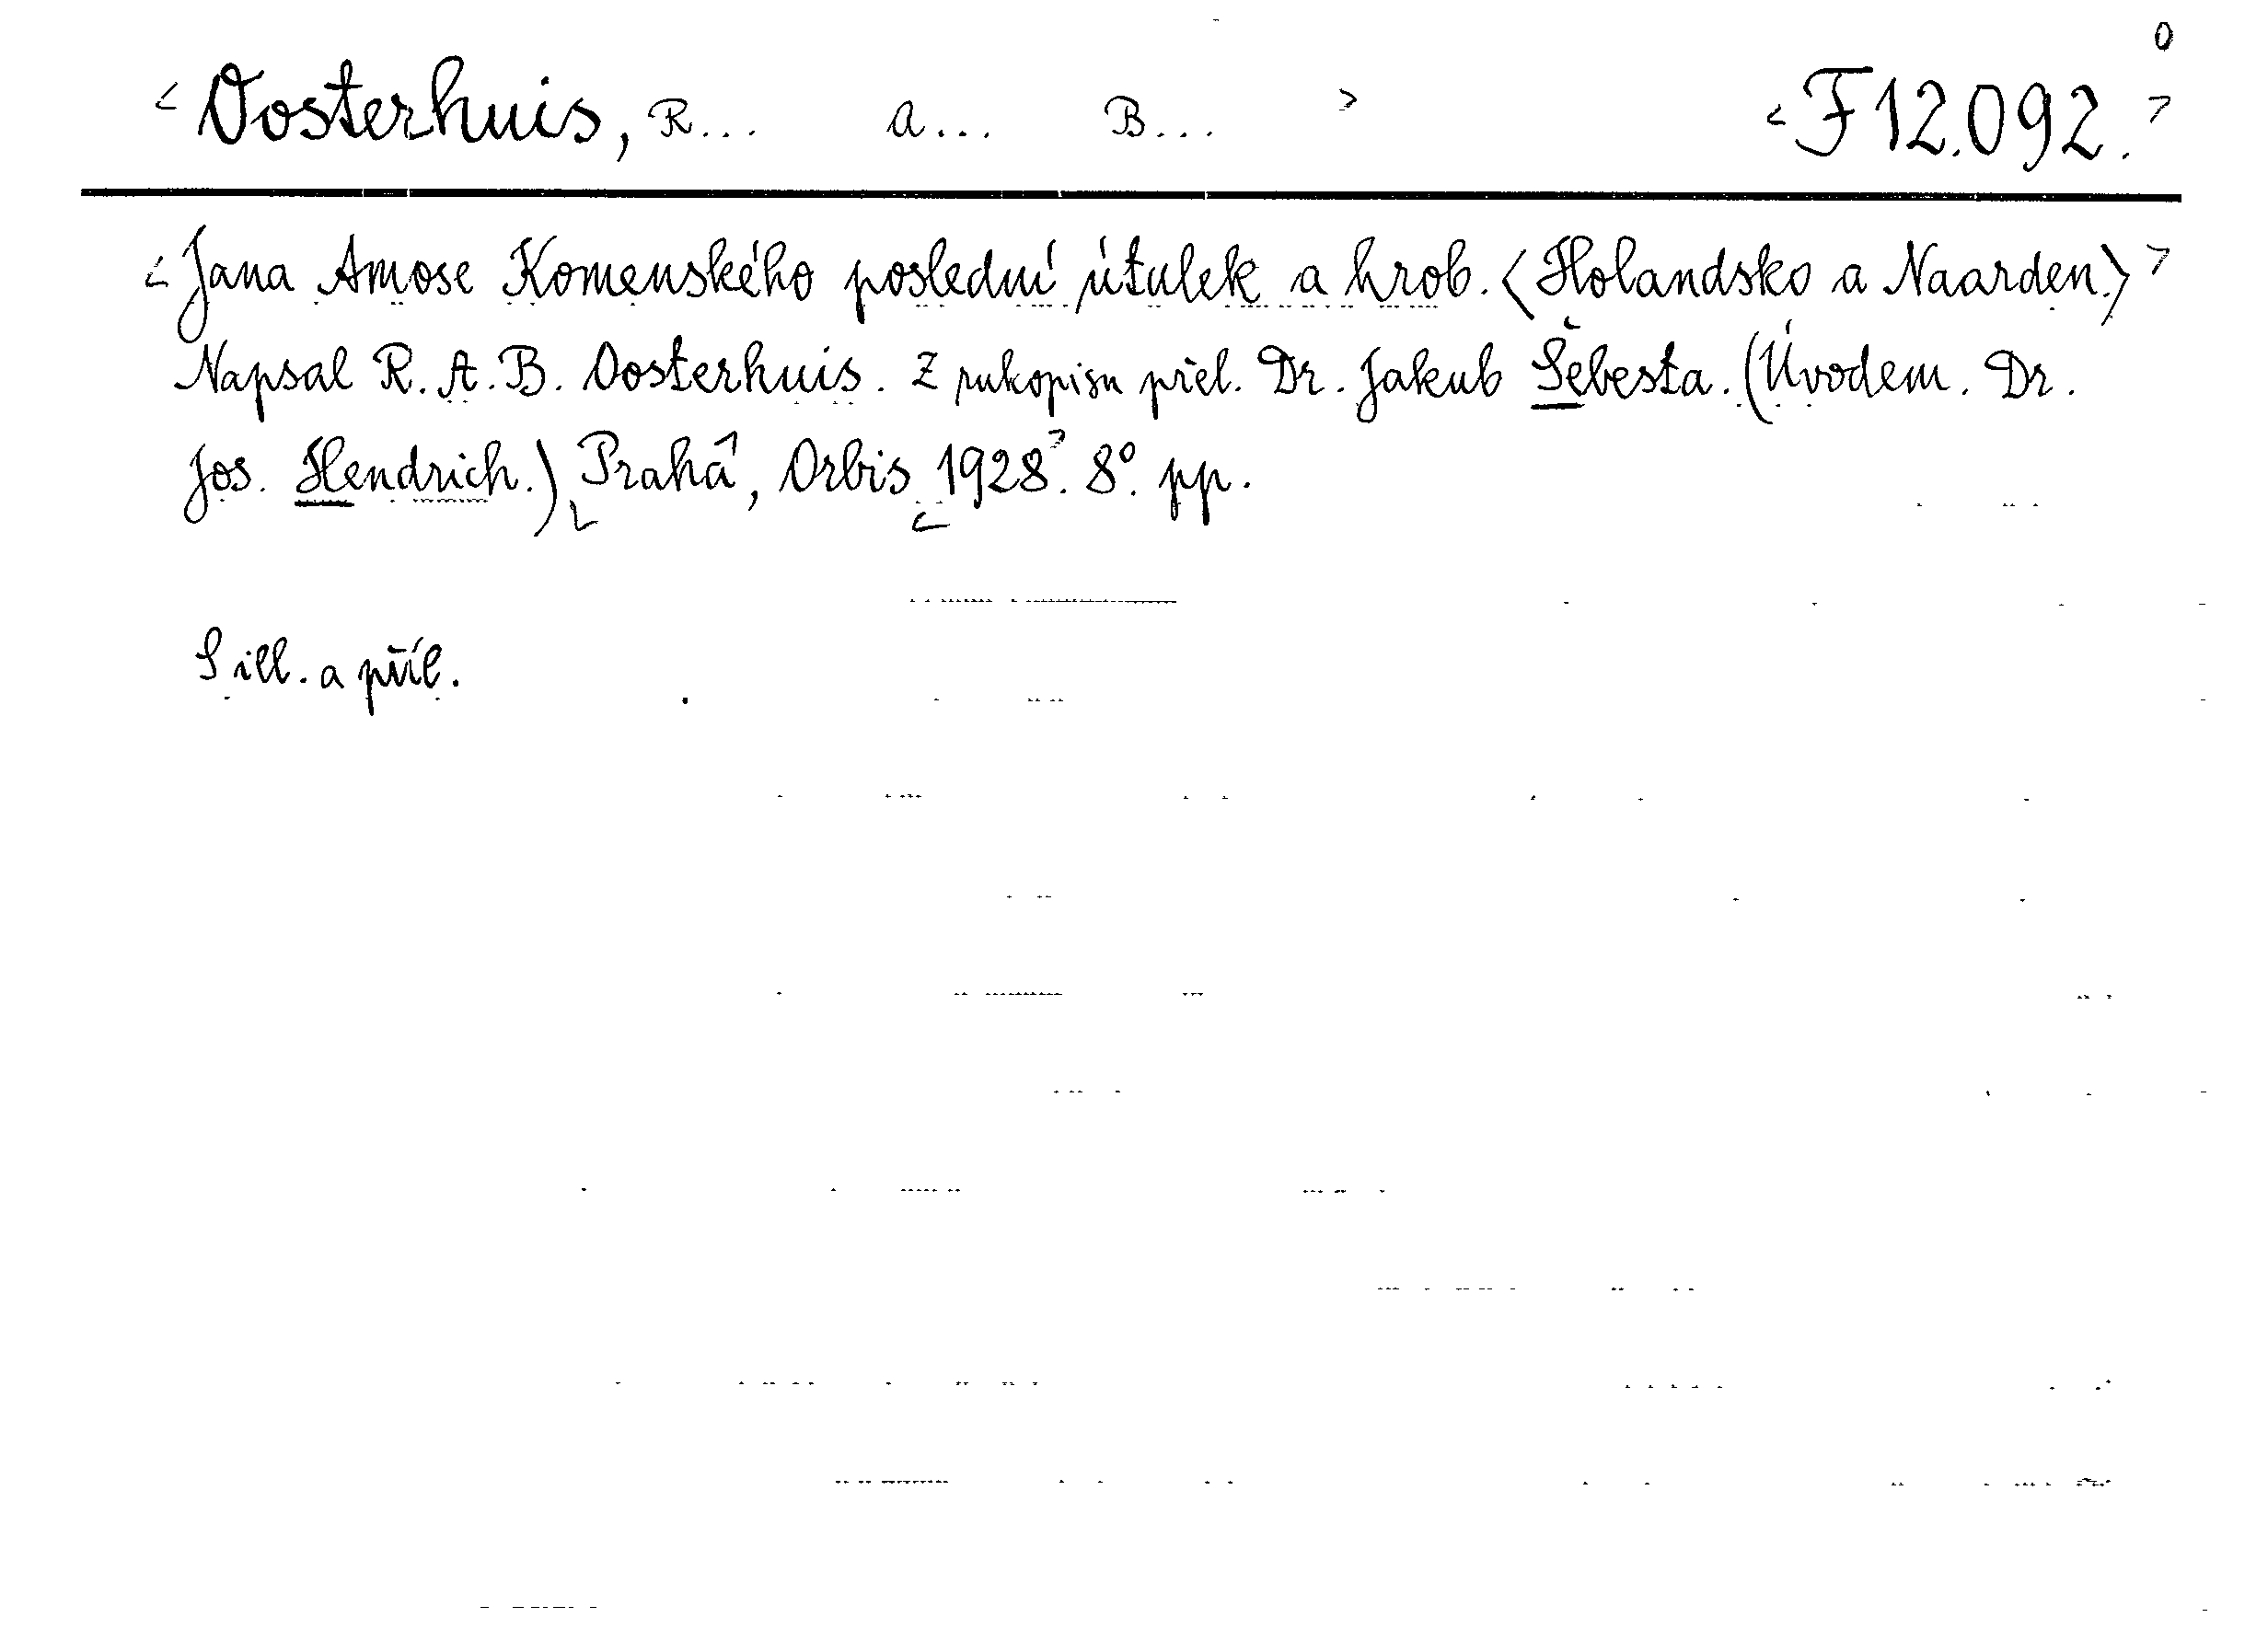 o
< Oosterhuis, R... A... B... > < F 12.092. >
< Jana Amose Komenského poslední útulek a hrob. <Holandsko a Naarden.> >
Napsal R. A. B. Oosterhuis. Z rukopisu přel. Dr. Jakub Šebesta. (Úvodem. Dr.
Jos. Hendrich.) Praha, Orbis 1928. 8°. pp.
S ill. a příl.